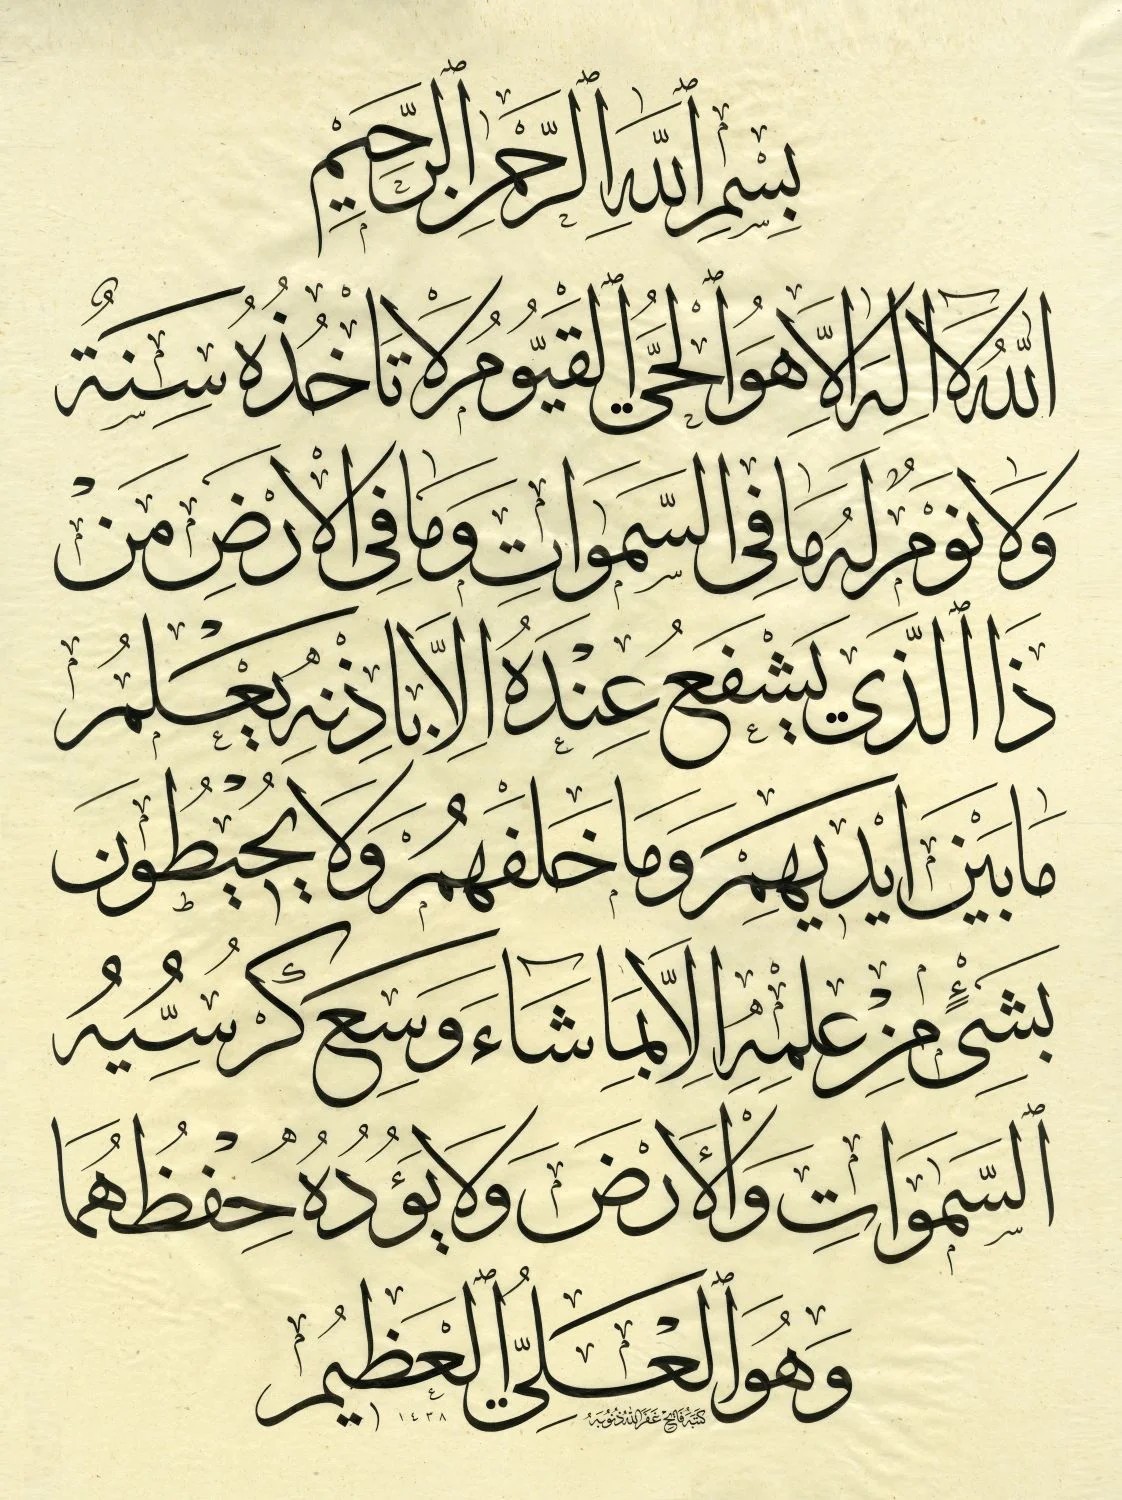 بِسْمِ ٱللّٰهِ ٱلرَّحْمٰنِ ٱلرَّحِيمِ
اَللّٰهُ لَٓا اِلٰهَ اِلَّا هُوَ ٱلْحَيُّ ٱلْقَيُّومُ لَا تَأْخُذُهُ سِنَةٌ
وَلَا نَوْمٌ لَهُ مَا فِى السَّمٰوَاتِ وَمَا فِى الْاَرْضِ مَنْ
ذَا ٱلَّذِى يَشْفَعُ عِنْدَهُ اِلَّا بِاِذْنِهِ يَعْلَمُ
مَا بَيْنَ اَيْدِيهِمْ وَمَا خَلْفَهُمْ وَلَا يُحِيْطُونَ
بِشَىْءٍ مِنْ عِلْمِهِ اِلَّا بِمَا شَٓاءَ وَسِعَ كُرْسِيُّهُ
ٱلسَّمٰوَاتِ وَالْأَرْضَ وَلَا يَؤُدُهُ حِفْظُهُمَا
وَهُوَ ٱلْعَلِىُّ ٱلْعَظِيمُ
كتبه فاتح غفر الله ذنوبه ١٤٣٨